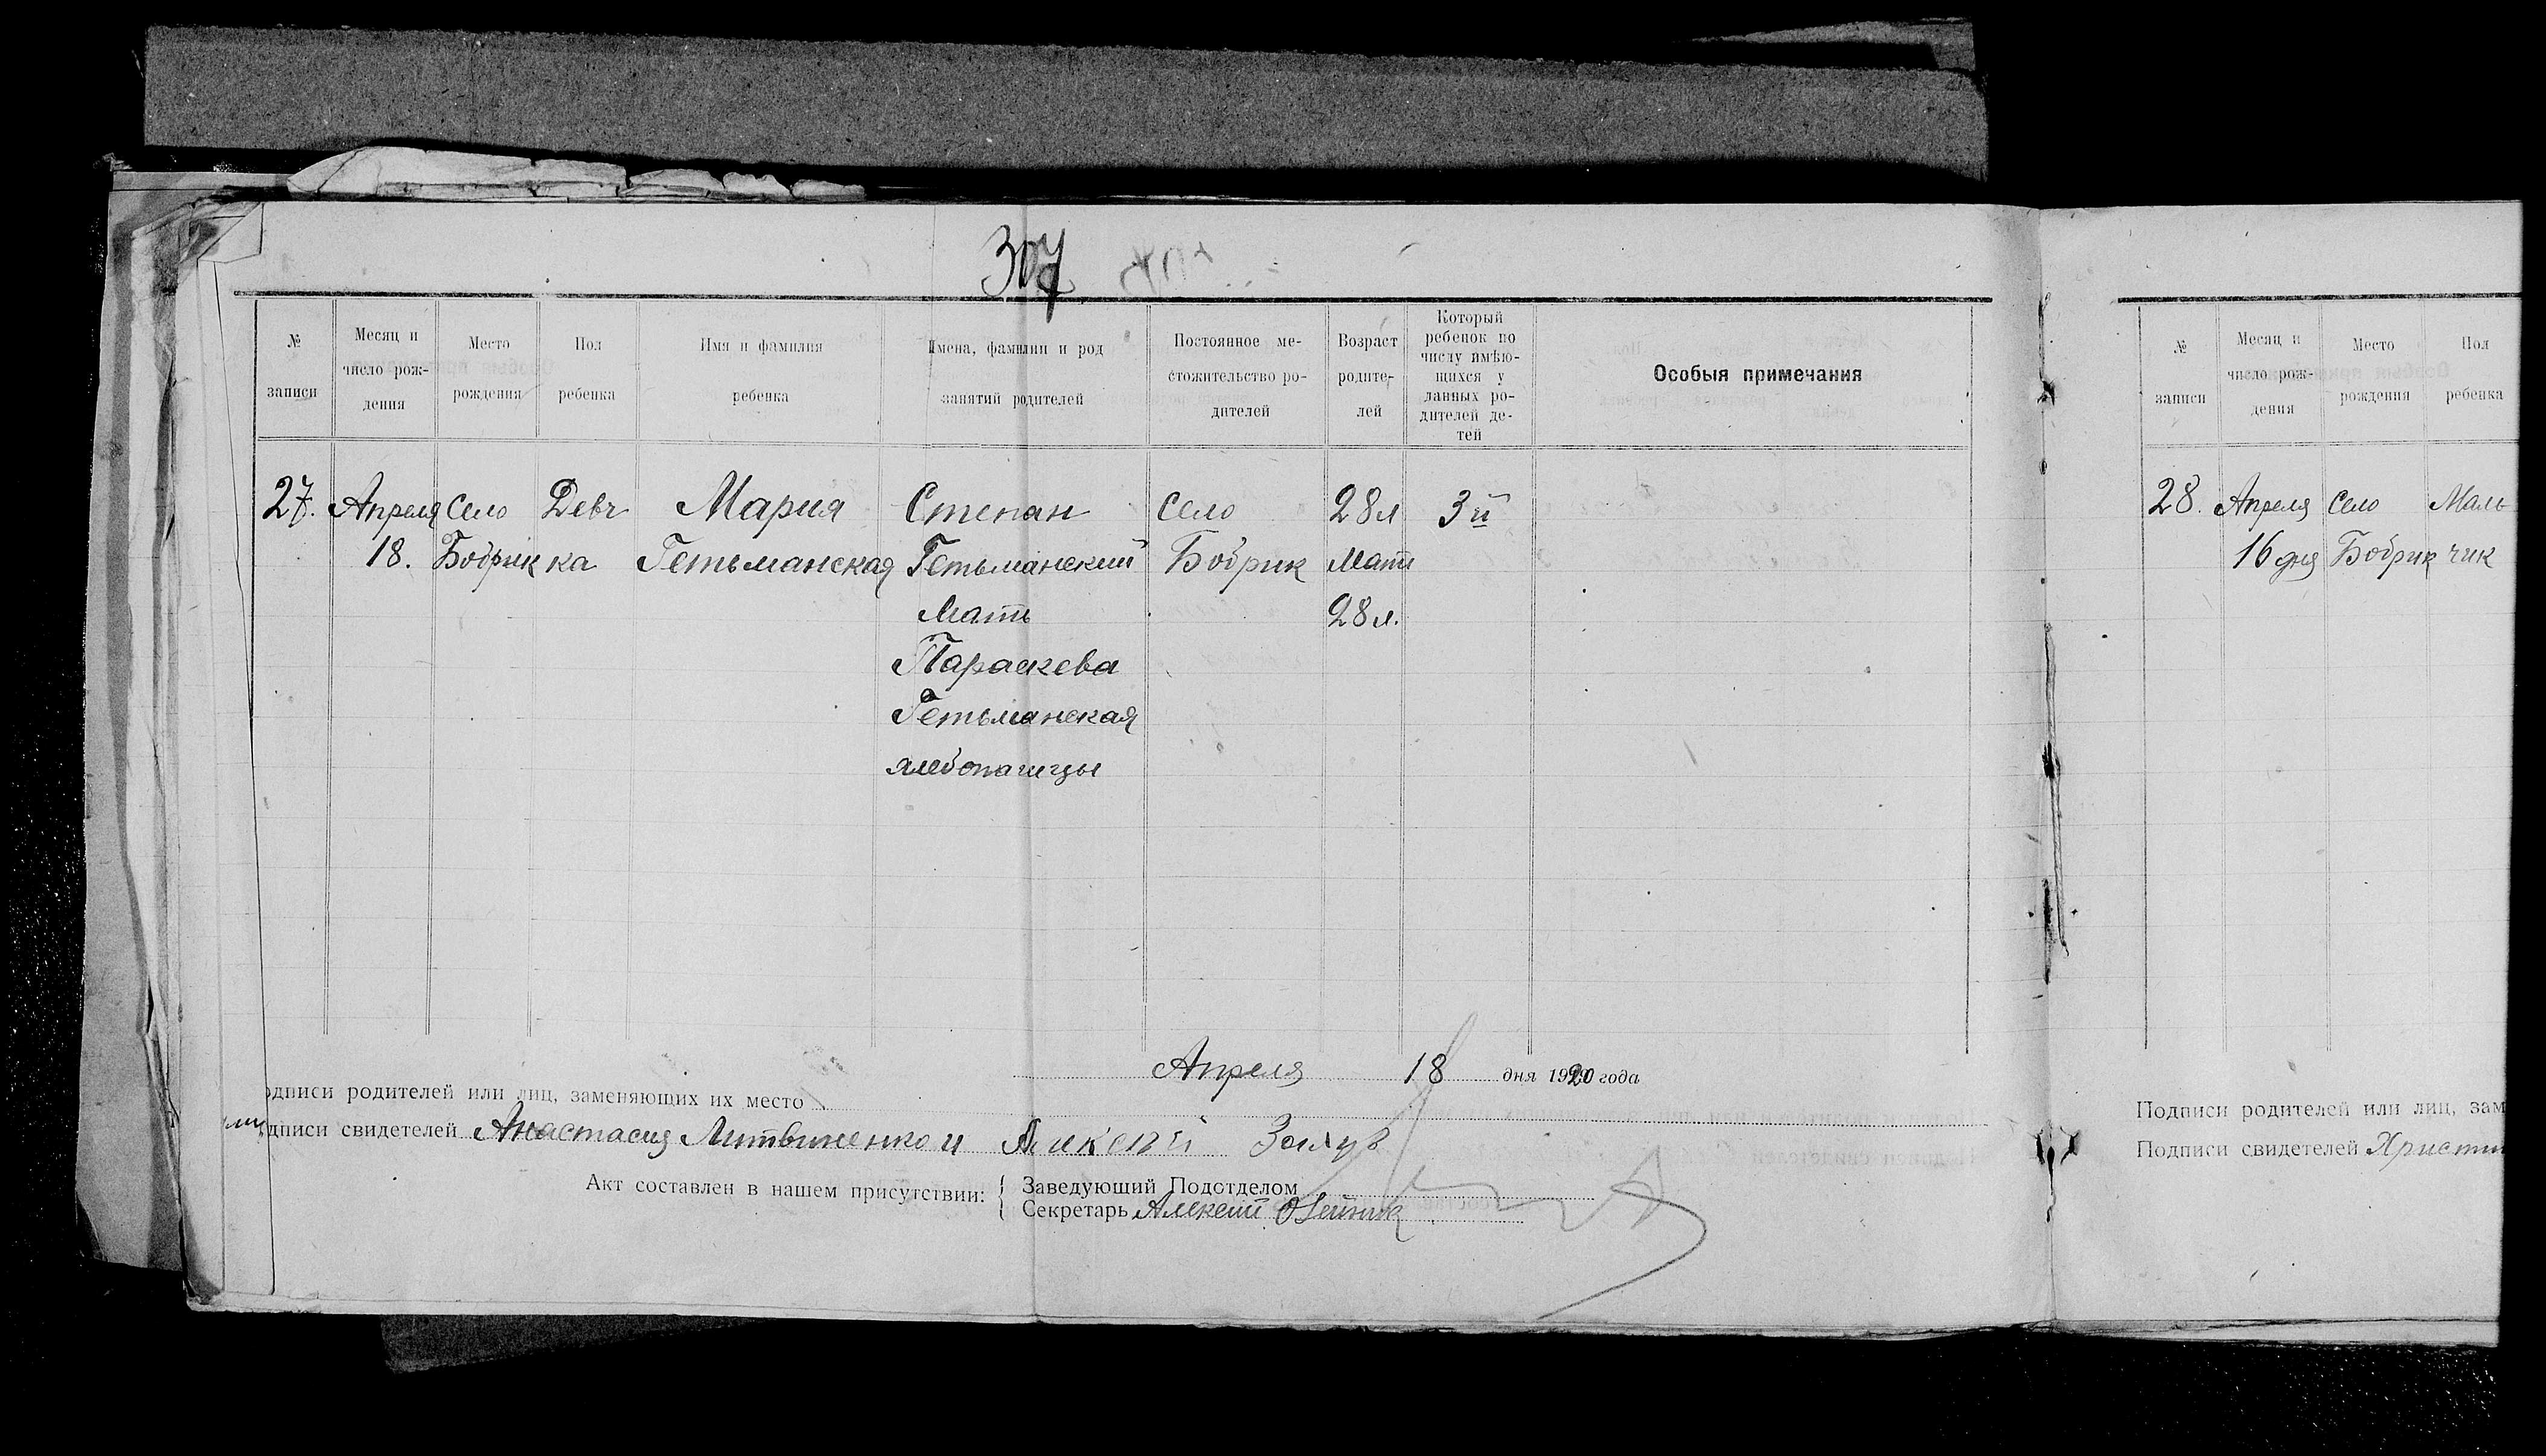 307
№ записи
Месяц и число рождения
Место рождения
Пол ребенка
Имя и фамилия ребенка
Имена, фамилии и род занятий родителей
Постоянное местожительство родителей
Возраст родителей
Который ребенок по числу имѣющихся у данных родителей детей
Особыя примечания
27. Апреля село Девч Мария Степан село 28 л 3й
18. Бобрик ка Гетьманская Гетьманский Бобрик Мати
Мать 28 л.
Параскева
Гетьманская
хлебопашцы
Апреля 18 дня 1920 года
одписи родителей или лиц, заменяющих их место
дписи свидетелей Анастасия Литвиненко и
Акт составлен в нашем присутствии:
Заведующий Подотделом
Секретарь Алексей Олейник
№ записи
Месяц и число рождения
Место рождения
Пол ребенка
28. Апреля село Маль
16 дня Бобрик чик
Подписи родителей или лиц, зам
Подписи свидетелей Христин